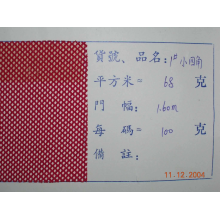 貨號、品名:1# 小四角
平方米= 68 克
門 幅: 1.60m
每 碼= 100 克
備 註:
11.12.2004